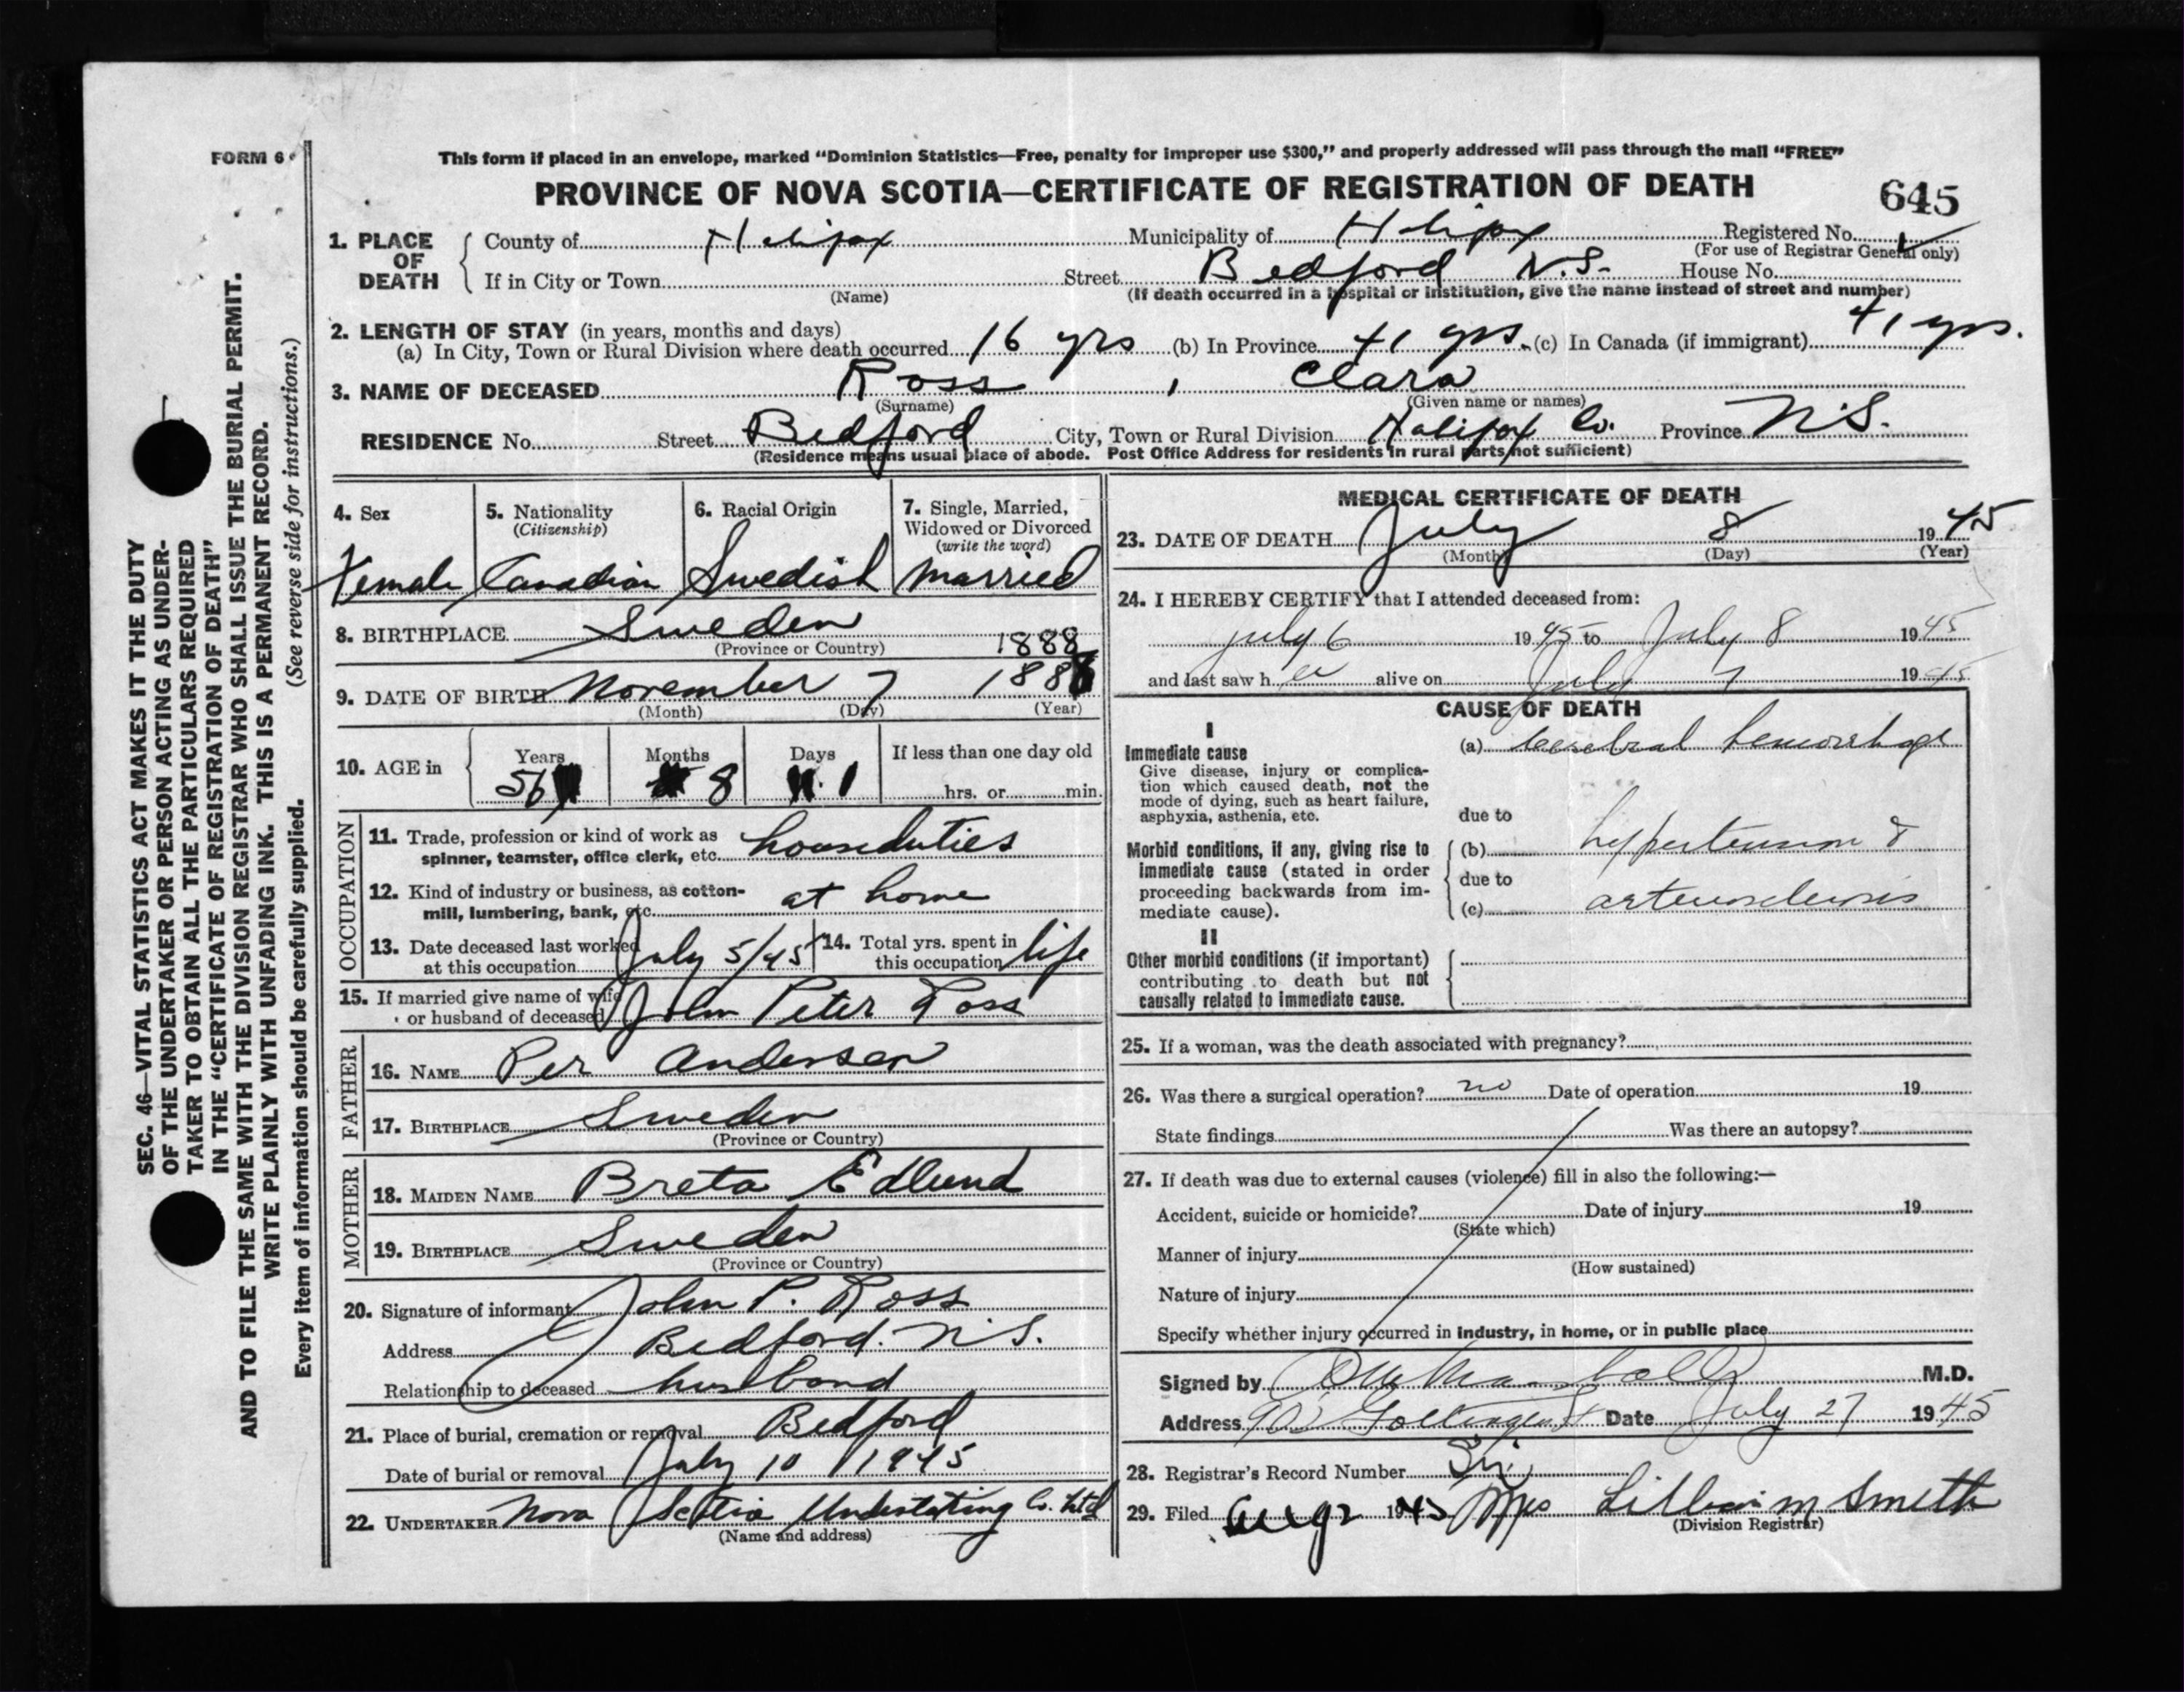 FORM 6
This form if placed in an envelope, marked “Dominion Statistics—Free, penalty for improper use $300,” and properly addressed will pass through the mail “FREE”
PROVINCE OF NOVA SCOTIA—CERTIFICATE OF REGISTRATION OF DEATH
645
1. PLACE OF DEATH County of Halifax Municipality of Halifax Registered No.
(For use of Registrar General only)
If in City or Town Street Bedford N.S. House No.
(Name) (If death occurred in a hospital or institution, give the name instead of street and number)
2. LENGTH OF STAY (in years, months and days)
(a) In City, Town or Rural Division where death occurred 16 yrs (b) In Province 41 yrs. (c) In Canada (if immigrant) 41 yrs.
3. NAME OF DECEASED Ross , Clara
(Surname) (Given name or names)
RESIDENCE No. Street Bedford City, Town or Rural Division Halifax Co. Province N.S.
(Residence means usual place of abode. Post Office Address for residents in rural parts not sufficient)
4. Sex 5. Nationality (Citizenship) 6. Racial Origin 7. Single, Married, Widowed or Divorced (write the word)
Female Canadian Swedish Married
8. BIRTHPLACE Sweden
(Province or Country) 1888
9. DATE OF BIRTH November 7 1888
(Month) (Day) (Year)
10. AGE in Years Months Days If less than one day old
56 8 1 hrs. or min.
OCCUPATION
11. Trade, profession or kind of work as
spinner, teamster, office clerk, etc. houseduties
12. Kind of industry or business, as cotton-
mill, lumbering, bank, etc. at home
13. Date deceased last worked
at this occupation July 5/45
14. Total yrs. spent in
this occupation life
15. If married give name of wife
or husband of deceased John Peter Ross
FATHER
16. NAME Per Anderson
17. BIRTHPLACE Sweden
(Province or Country)
MOTHER
18. MAIDEN NAME Breta Edlund
19. BIRTHPLACE Sweden
(Province or Country)
20. Signature of informant John P. Ross
Address Bedford. N.S.
Relationship to deceased husband
21. Place of burial, cremation or removal Bedford
Date of burial or removal July 10 1945
22. UNDERTAKER Nova Scotia Undertaking Co. Ltd
(Name and address)
MEDICAL CERTIFICATE OF DEATH
23. DATE OF DEATH July 8 1945
(Month) (Day) (Year)
24. I HEREBY CERTIFY that I attended deceased from:
July 6 1945 to July 8 1945
and last saw her alive on July 7 1945
CAUSE OF DEATH
I
Immediate cause (a) Cerebral hemorrhage
Give disease, injury or complica-
tion which caused death, not the
mode of dying, such as heart failure,
asphyxia, asthenia, etc. due to
Morbid conditions, if any, giving rise to (b) hypertension &
immediate cause (stated in order due to
proceeding backwards from im-
mediate cause). (c) arteriosclerosis
II
Other morbid conditions (if important)
contributing to death but not
causally related to immediate cause.
25. If a woman, was the death associated with pregnancy?
26. Was there a surgical operation? no Date of operation 19
State findings Was there an autopsy?
27. If death was due to external causes (violence) fill in also the following:—
Accident, suicide or homicide? Date of injury 19
(State which)
Manner of injury
(How sustained)
Nature of injury
Specify whether injury occurred in industry, in home, or in public place
Signed by M.D.
Address Gottingen St Date July 27 1945
28. Registrar's Record Number Six
29. Filed Aug 2 1945 Mrs Lillian M Smith
(Division Registrar)
SEC. 46—VITAL STATISTICS ACT MAKES IT THE DUTY
OF THE UNDERTAKER OR PERSON ACTING AS UNDER-
TAKER TO OBTAIN ALL THE PARTICULARS REQUIRED
IN THE “CERTIFICATE OF REGISTRATION OF DEATH”
AND TO FILE THE SAME WITH THE DIVISION REGISTRAR WHO SHALL ISSUE THE BURIAL PERMIT.
WRITE PLAINLY WITH UNFADING INK. THIS IS A PERMANENT RECORD.
Every item of information should be carefully supplied. (See reverse side for instructions.)